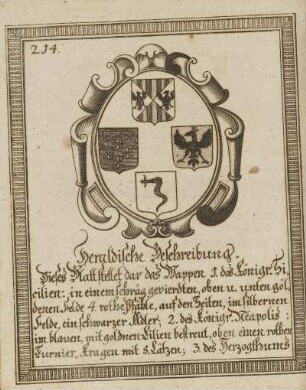 214.
Heraldische Beschreibung.
Dieses Blatt stellet dar das Wappen 1. des Königr. Si-
cilien: in einem schräg gevierdten, oben u. unten gol-
denen Felde 4. rothe Pfähle, auf den Seiten, im silbernen
Felde, ein schwarzer Adler; 2. des Königr. Neapolis:
im blauen, mit goldnen Lilien bestreut, oben einen rothen
Turnier-Kragen mit 5. Latzen; 3. des Herzogthums